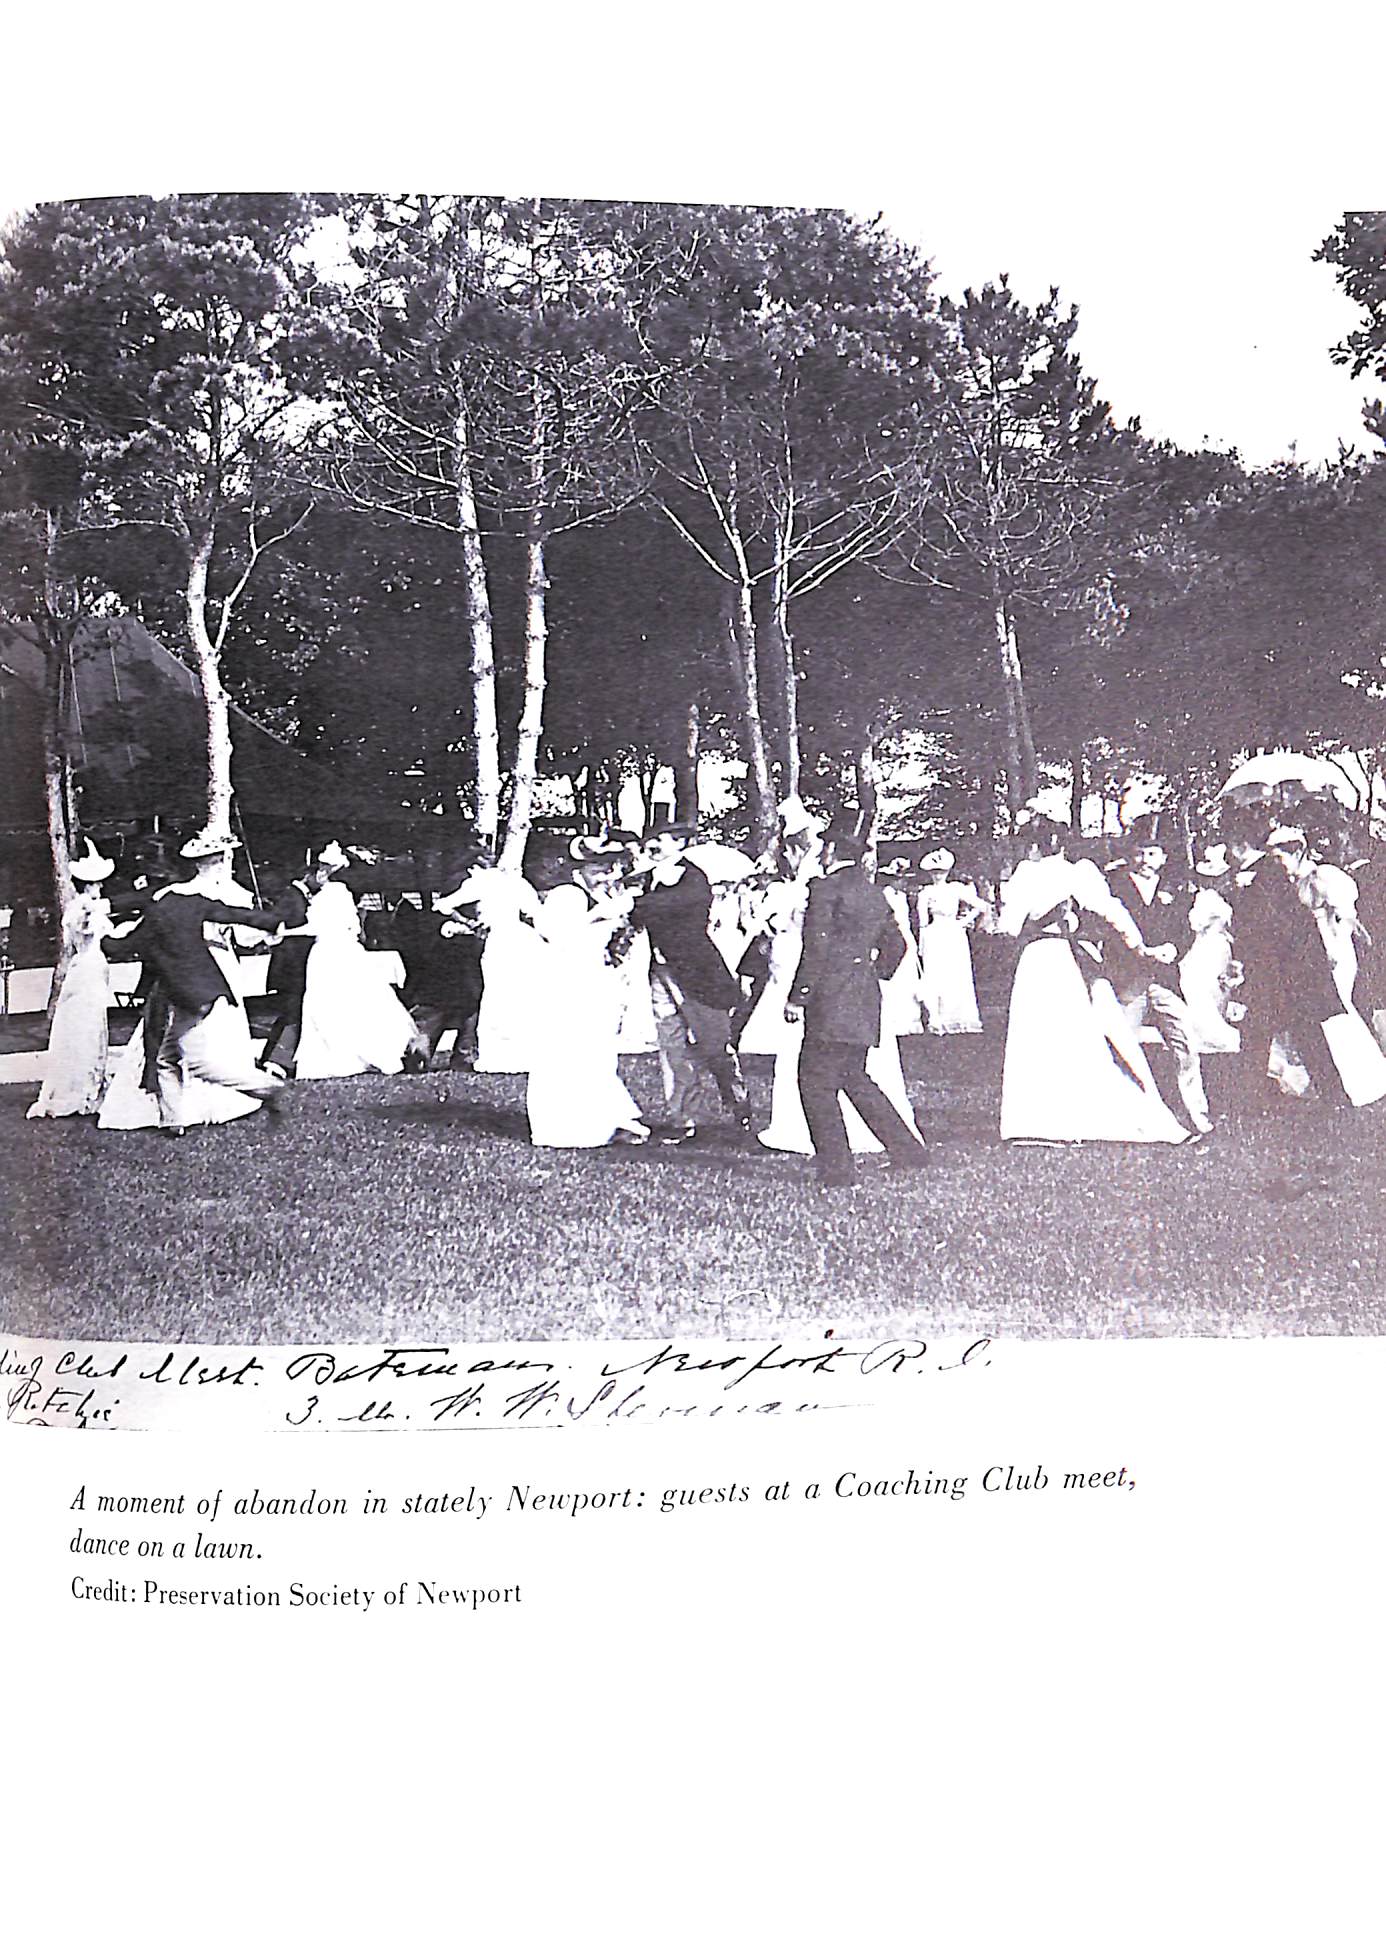 Club Meet. Batemans. Newport R. I.
Ritchie 3. Mr. W. W. Sherman
A moment of abandon in stately Newport: guests at a Coaching Club meet,
dance on a lawn.
Credit: Preservation Society of Newport